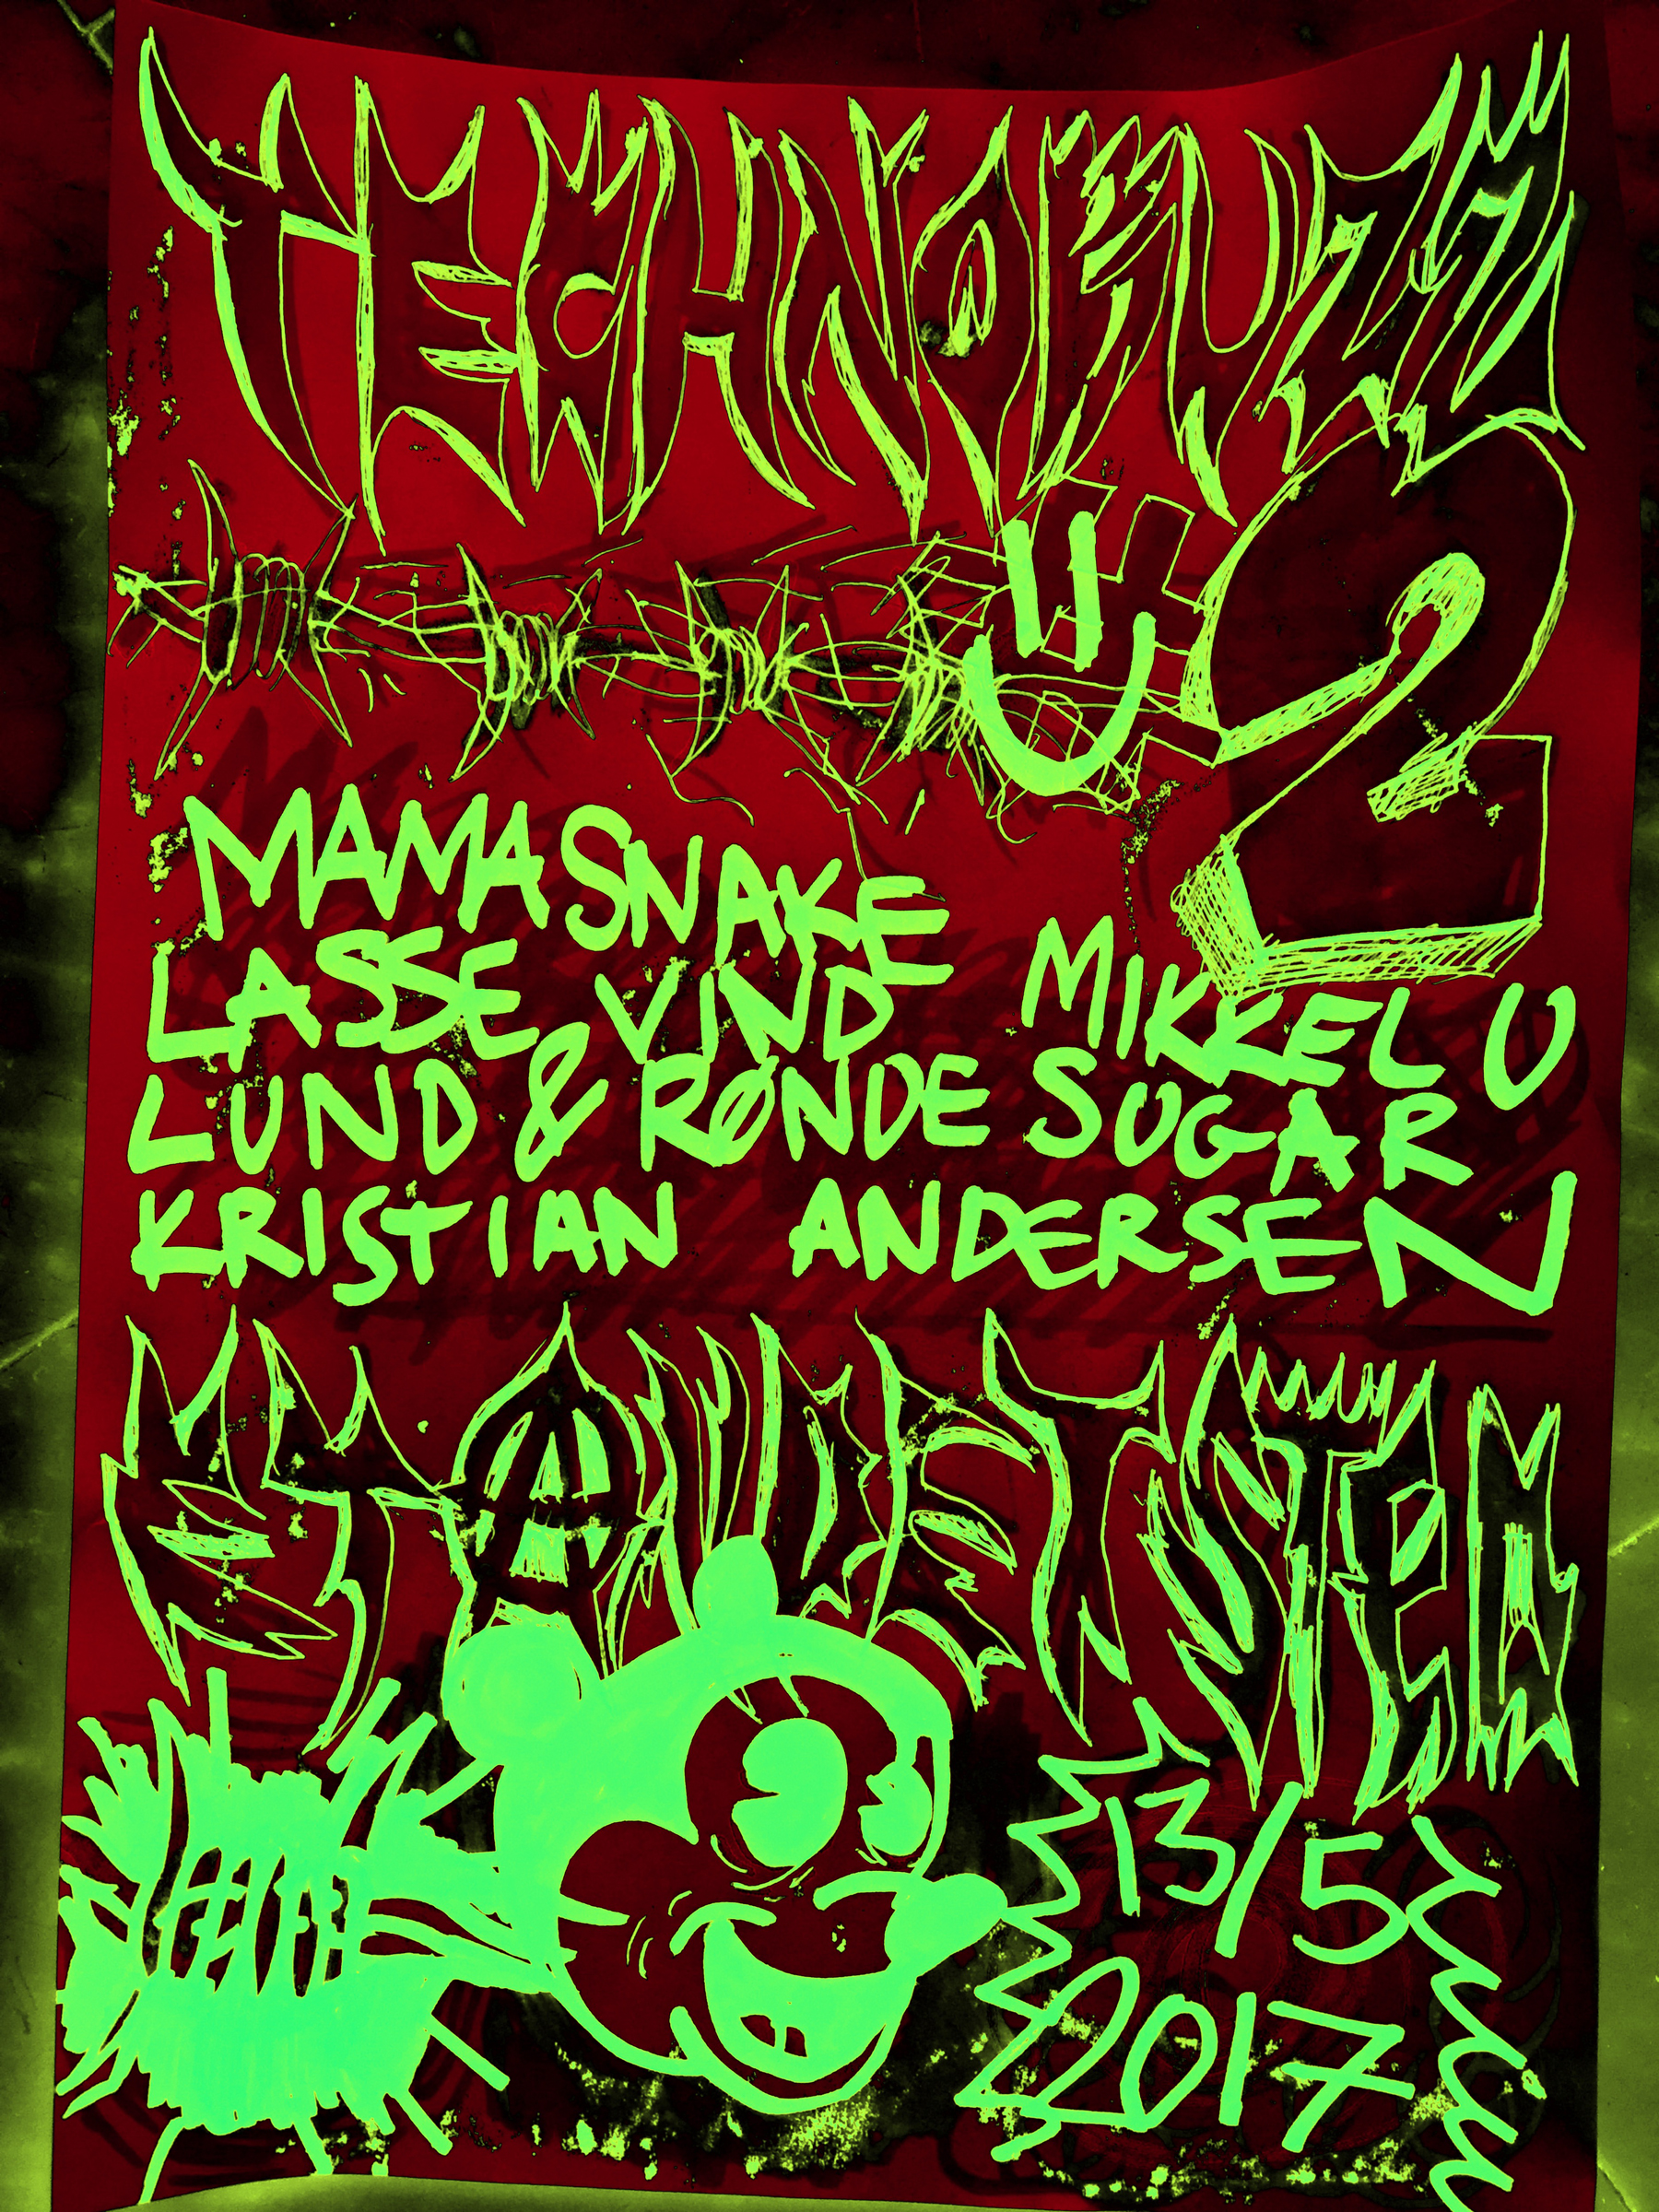 TECHNOBUZZ
#2
MAMA SNAKE
LASSE VIND MIKKEL U
LUND & RØNDE SUGAR
KRISTIAN ANDERSEN
ET ANDET STED
13/5
2017